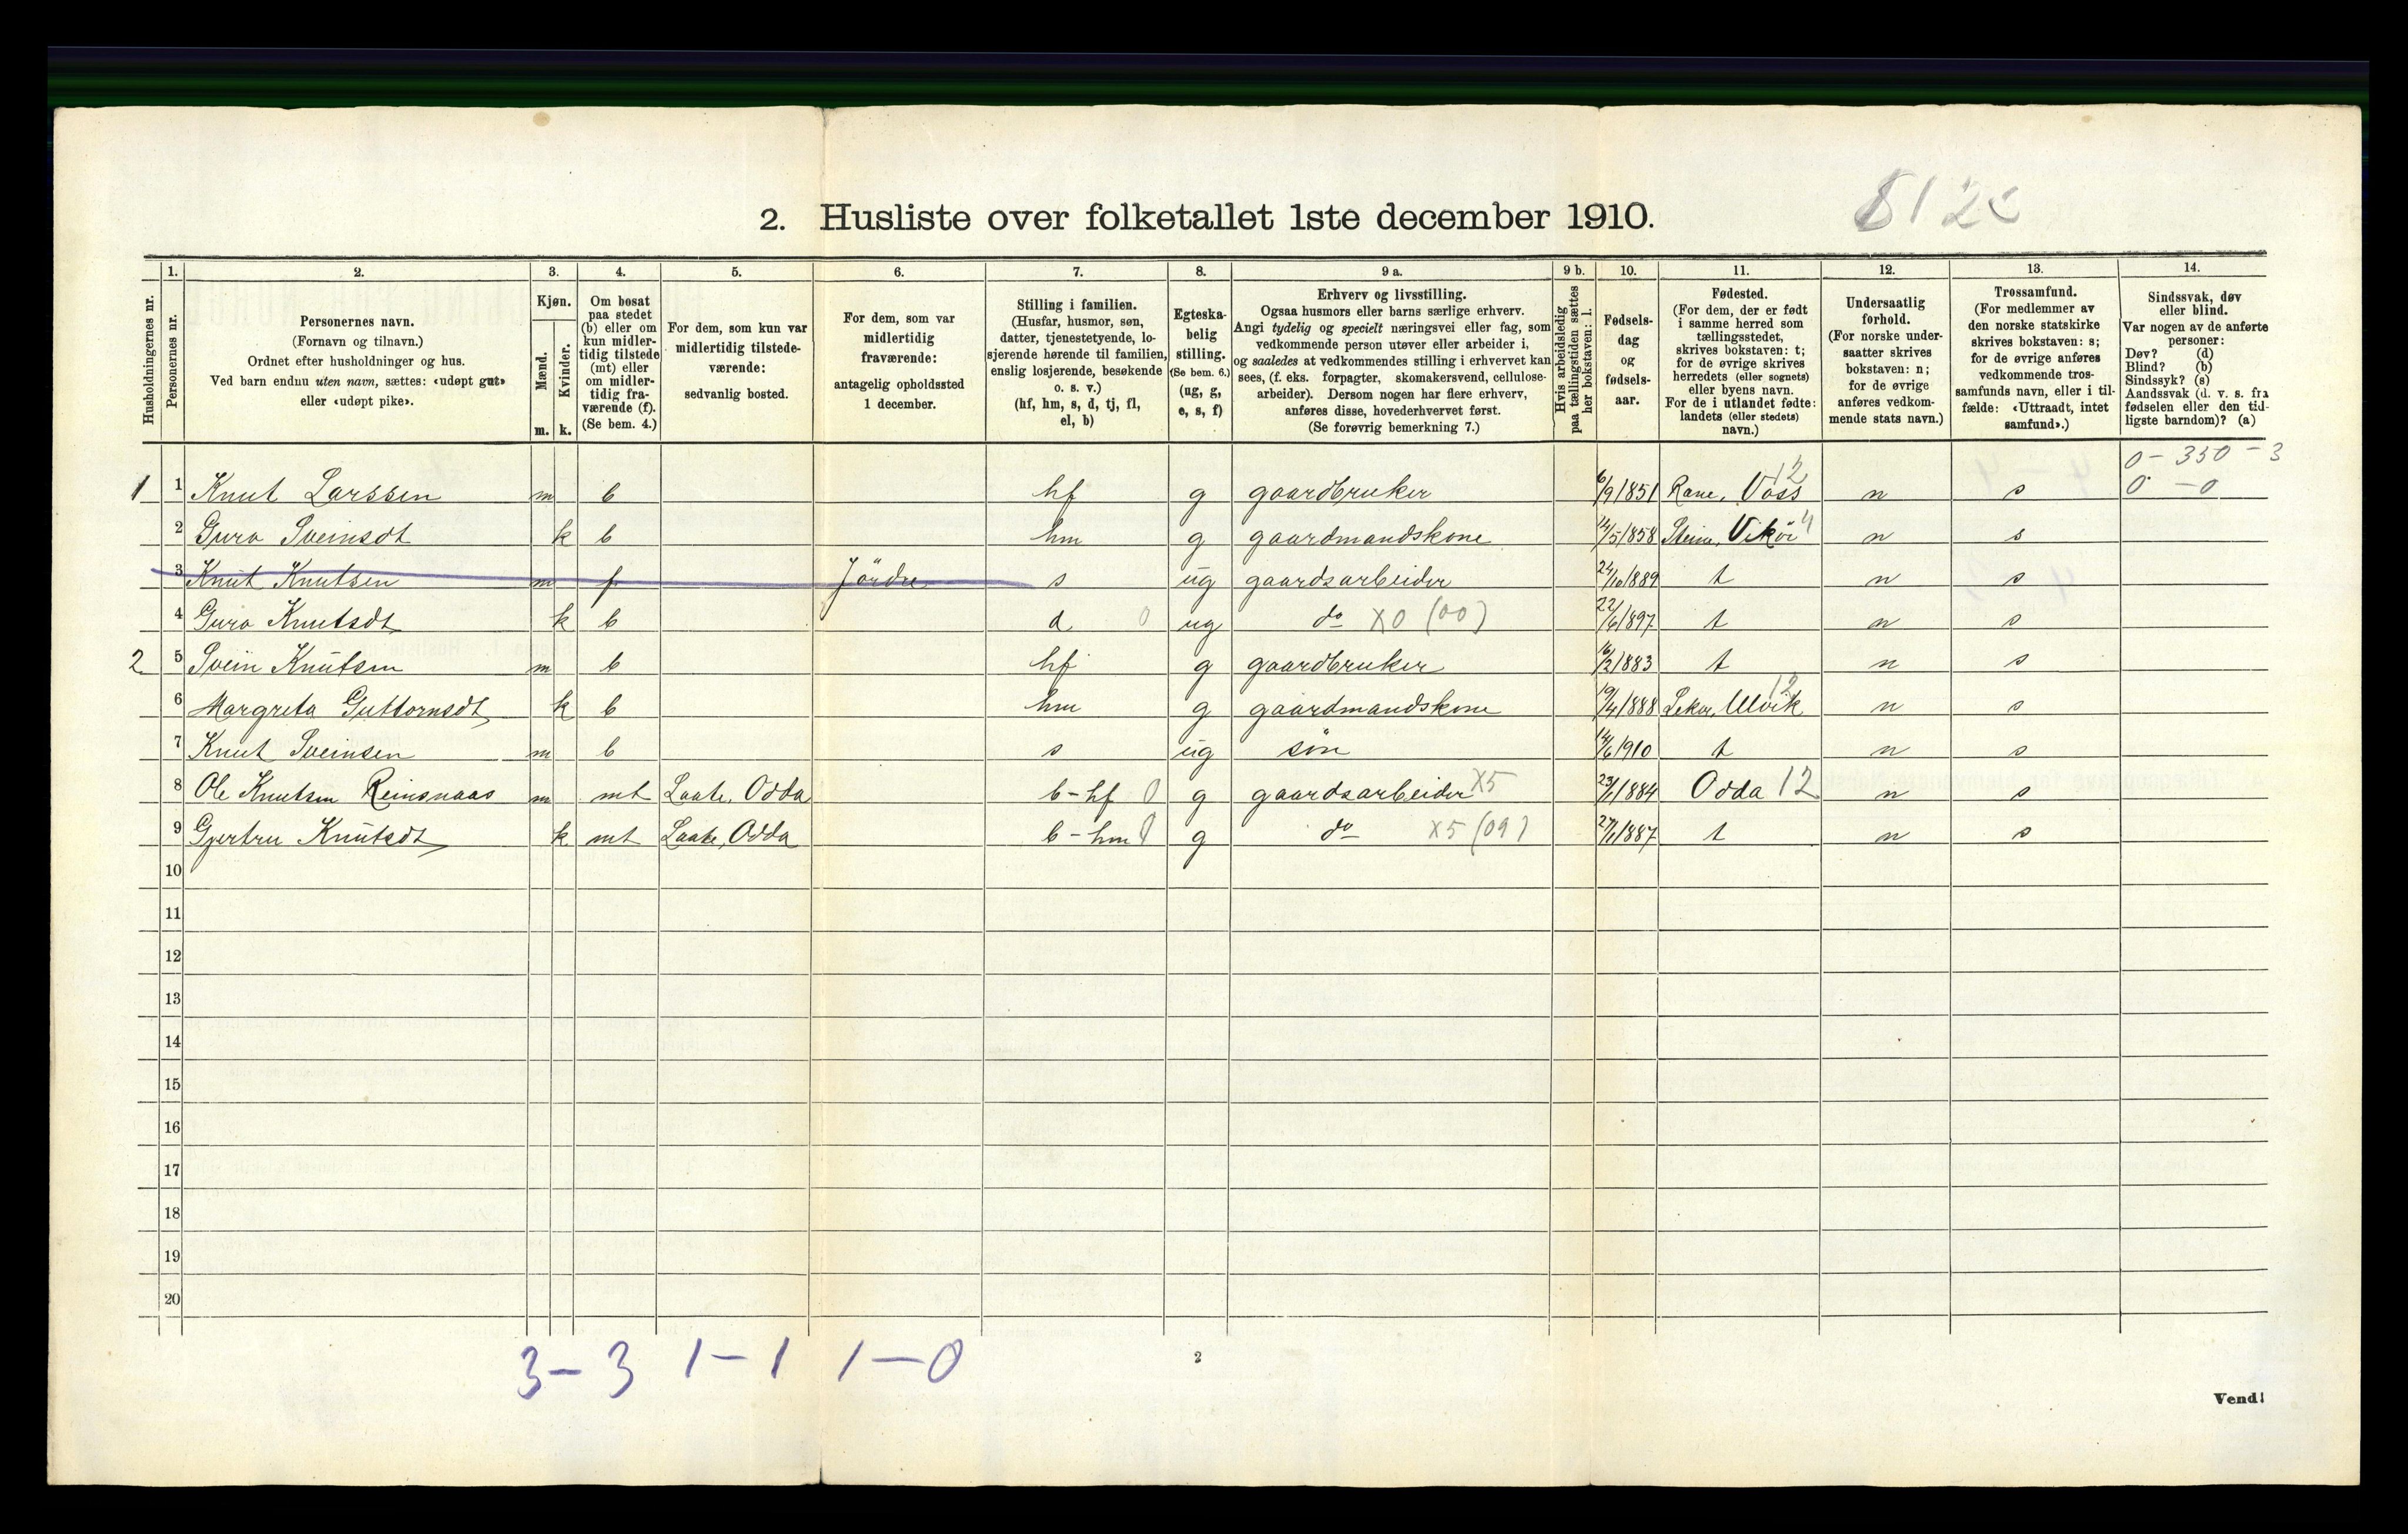 2. Husliste over folketallet 1ste december 1910.
1. 2. 3. 4. 5. 6. 7. 8. 9 a. 9 b. 10. 11. 12. 13. 14.
Husholdningernes nr.
Personernes nr.
Personernes navn.
(Fornavn og tilnavn.)
Ordnet efter husholdninger og hus.
Ved barn endnu uten navn, sættes: «udøpt gut»
eller «udøpt pike».
Kjøn.
Mænd.
Kvinder.
m. k.
Om bosat
paa stedet
(b) eller om
kun midler-
tidig tilstede
(mt) eller
om midler-
tidig fra-
værende (f).
(Se bem. 4.)
For dem, som kun var
midlertidig tilstede-
værende:
sedvanlig bosted.
For dem, som var
midlertidig
fraværende:
antagelig opholdssted
1 december.
Stilling i familien.
(Husfar, husmor, søn,
datter, tjenestetyende, lo-
sjerende hørende til familien,
enslig losjerende, besøkende
o. s. v.)
(hf, hm, s, d, tj, fl,
el, b)
Egteska-
belig
stilling.
(Se bem. 6.)
(ug, g,
e, s, f)
Erhverv og livsstilling.
Ogsaa husmors eller barns særlige erhverv.
Angi tydelig og specielt næringsvei eller fag, som
vedkommende person utøver eller arbeider i,
og saaledes at vedkommendes stilling i erhvervet kan
sees, (f. eks. forpagter, skomakersvend, cellulose-
arbeider). Dersom nogen har flere erhverv,
anføres disse, hovederhvervet først.
(Se forøvrig bemerkning 7.)
Hvis arbeidsledig
paa tællingstiden sættes
her bokstaven: l.
Fødsels-
dag
og
fødsels-
aar.
Fødested.
(For dem, der er født
i samme herred som
tællingsstedet,
skrives bokstaven: t;
for de øvrige skrives
herredets (eller sognets)
eller byens navn.
For de i utlandet fødte:
landets (eller stedets)
navn.)
Undersaatlig
forhold.
(For norske under-
saatter skrives
bokstaven: n;
for de øvrige
anføres vedkom-
mende stats navn.)
Trossamfund.
(For medlemmer av
den norske statskirke
skrives bokstaven: s;
for de øvrige anføres
vedkommende tros-
samfunds navn, eller i til-
fælde: «Uttraadt, intet
samfund».)
Sindssvak, døv
eller blind.
Var nogen av de anførte
personer:
Døv? (d)
Blind? (b)
Sindssyk? (s)
Aandssvak (d. v. s. fra
fødselen eller den tid-
ligste barndom)? (a)
0 - 350 - 3
1 1 Knut Larssen m b hf g gaardbruker 6/9 1851 Rane, Voss 12 n s 0 - 0
2 Guro Sveinsdt k b hm g gaardmandskone 14/5 1858 Steine, Vikör 4 n s
3 Knut Knutsen m f Jördre s ug gaardsarbeider 24/10 1889 t n s
4 Guro Knutsdt k b d 0 ug do X0 (00) 22/6 1897 t n s
2 5 Svein Knutsen m b hf g gaardbruker 16/2 1883 t n s
6 Margreta Guttormsdt k b hm g gaardmandskone 19/4 1888 Ulvik 12 n s
7 Knut Sveinsen m b s ug sön 14/6 1910 t n s
8 Ole Knutsen Reinsnaas m mt Laate, Odda b - hf 0 g gaardsarbeider X5 23/1 1884 Odda 12 n s
9 Gjertru Knutsdt k mt Laate, Odda b - hm 0 g do X5 (09) 27/1 1887 t n s
10
11
12
13
14
15
16
17
18
19
20
3 - 3 1 - 1 1 - 0
2
Vend!